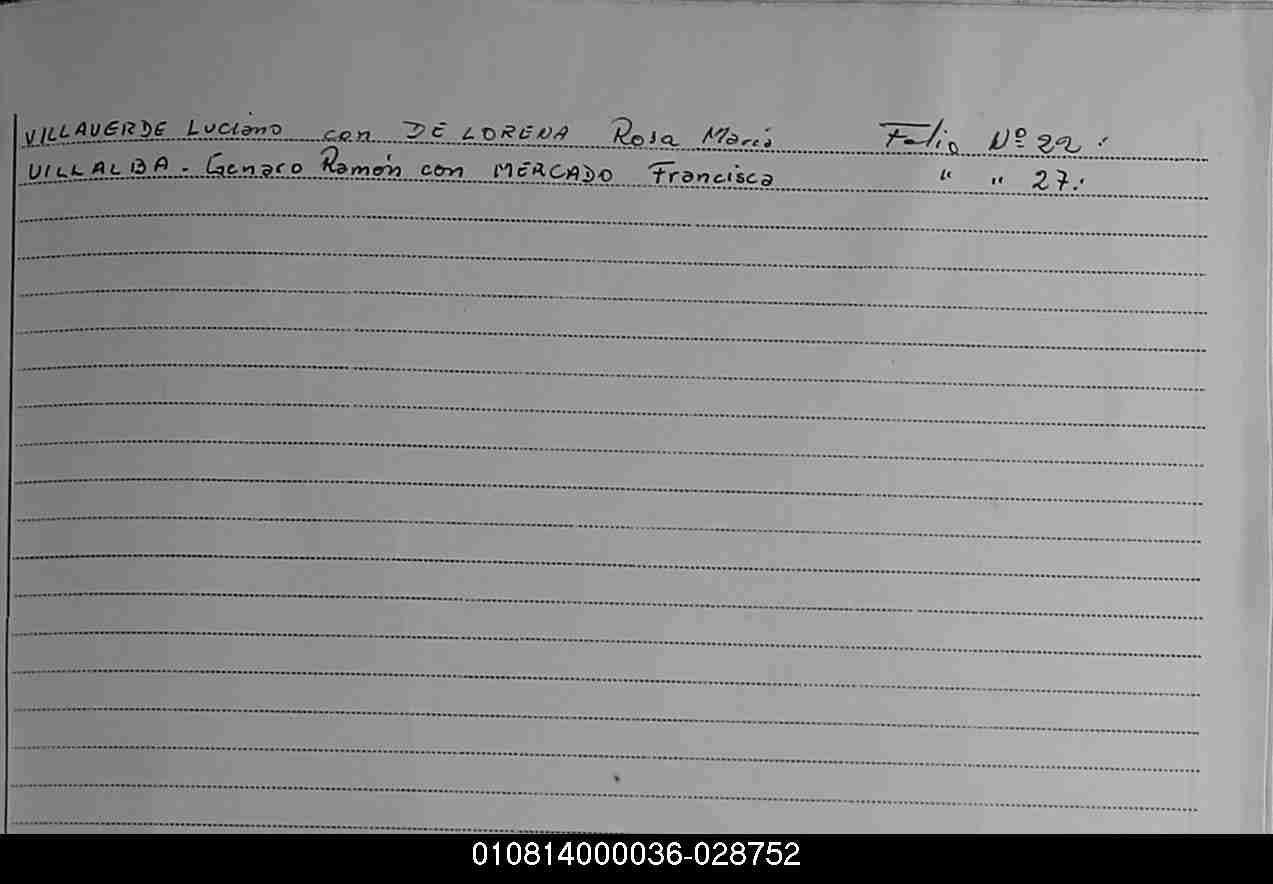 VILLAVERDE Luciano con DE LORENA Rosa María Folio Nº 22.
VILLALBA - Genaro Ramón con MERCADO Francisca " " 27.
010814000036-028752